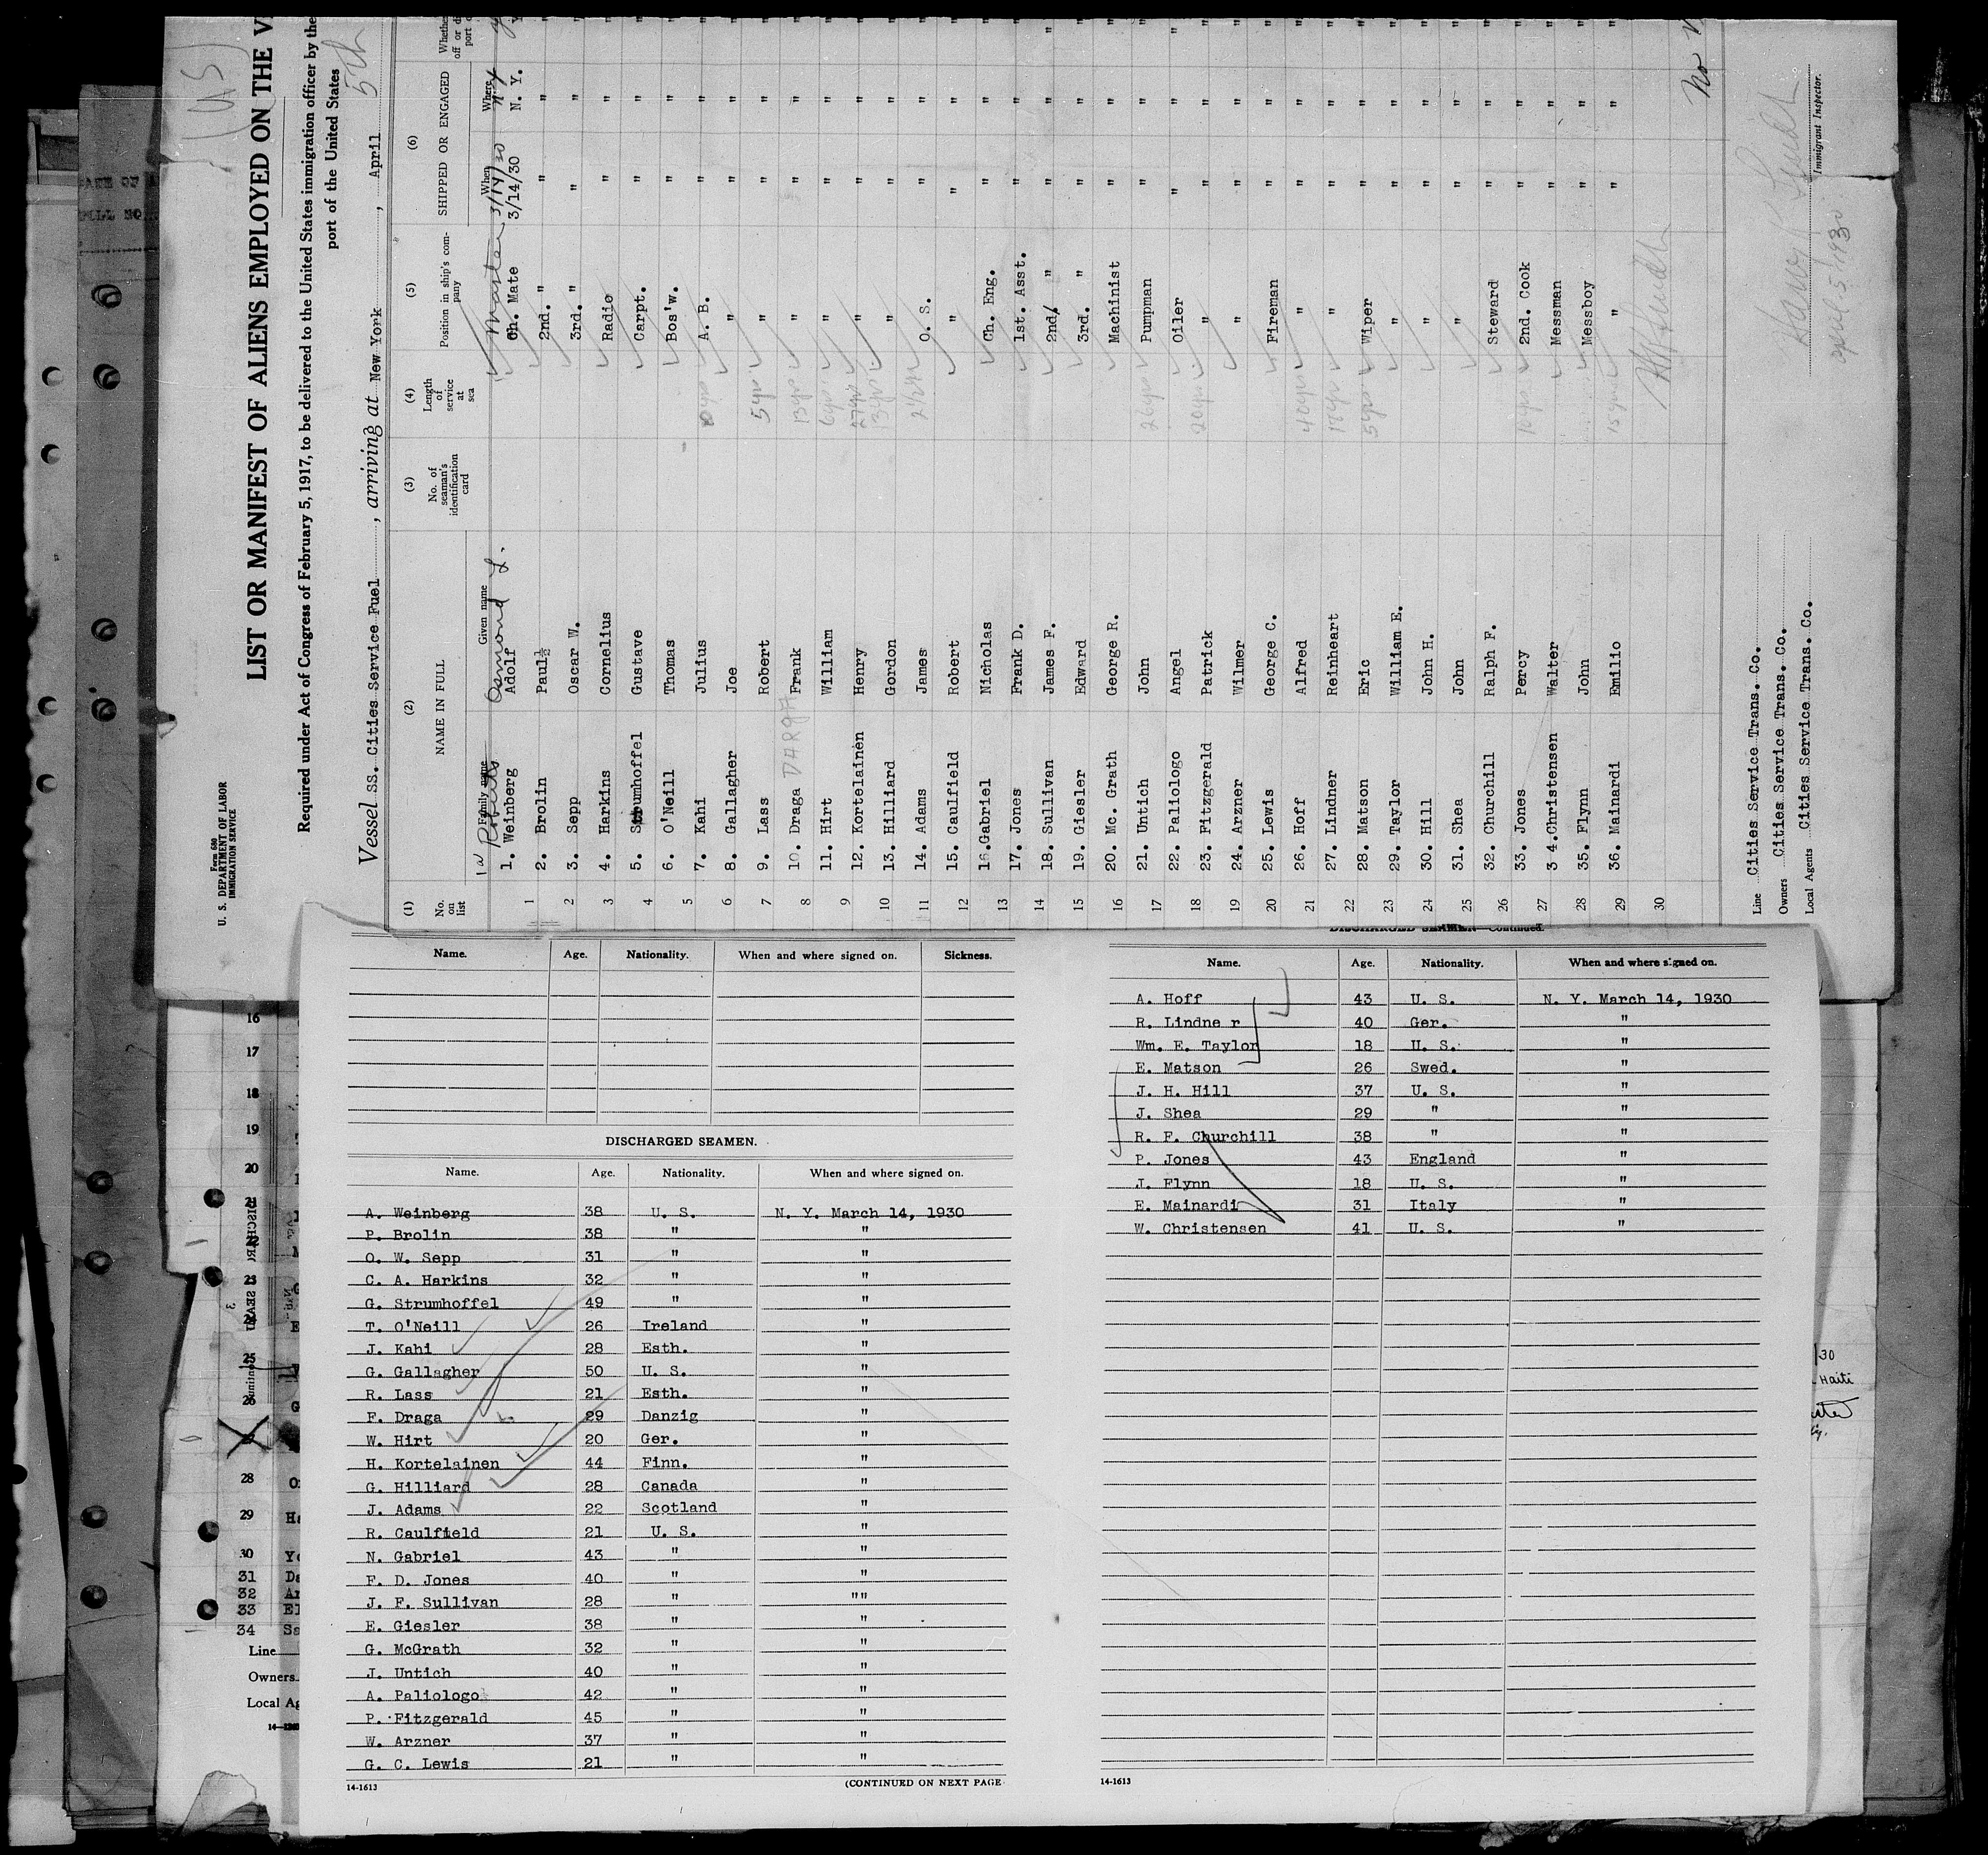 Form 680
U. S. DEPARTMENT OF LABOR
IMMIGRATION SERVICE
LIST OR MANIFEST OF ALIENS EMPLOYED ON THE
Required under Act of Congress of February 5, 1917, to be delivered to the United States immigration officer by the
port of the United States
Vessel SS. Cities Service Fuel, arriving at New York, April 5th
(1) (2) (3) (4) (5) (6)
No. on list NAME IN FULL No. of seaman's identification card Length of service at sea Position in ship's company SHIPPED OR ENGAGED
Family name Given name When Where
1a Roberts Osmond L. Master 3/14/30 N.Y.
1. Weinberg Adolf Ch. Mate 3/14/30 N. Y.
1 2. Brolin Paul½ 2nd. " " "
2 3. Sepp Oscar W. 3rd. " " "
3 4. Harkins Cornelius Radio " "
4 5. Strumhoffel Gustave Carpt. " "
5 6. O'Neill Thomas Bos'w. " "
6 7. Kahi Julius A. B. " "
7 8. Gallagher Joe " " "
7 9. Lass Robert 5yrs " " "
8 10. Draga DARGA Frank 13yrs " " "
9 11. Hirt William 6yrs " " "
10 12. Kortelainen Henry 27yrs " " "
11 13. Hilliard Gordon 13yrs " " "
12 14. Adams James O. S. " "
13 15. Caulfield Robert " " "
16.Gabriel Nicholas Ch. Eng. " "
14 17. Jones Frank D. 1st. Asst. " "
15 18. Sullivan James F. 2nd/ " " " "
19. Giesler Edward 3rd. " " "
16 20. Mc. Grath George R. Machinist " "
17 21. Untich John 26yrs Pumpman " "
18 22. Paliologo Angel 20yrs Oiler " " "
19 23. Fitzgerald Patrick " " "
20 24. Arzner Wilmer " " "
25. Lewis George C. Fireman " "
21 26. Hoff Alfred 40yrs " " "
22 27. Lindner Reinheart " "
23 28. Matson Eric 5yrs Wiper " "
24 29. Taylor William E. " " "
25 30. Hill John H. " " "
31. Shea John " " "
26 32. Churchill Ralph F. Steward " "
27 33. Jones Percy 2nd. Cook " "
28 3 4.Christensen Walter Messman " "
29 35. Flynn John Messboy " "
36. Mainardi Emilio 15yrs " " "
30
Line Cities Service Trans. Co.
Owners Cities Service Trans. Co.
Local Agents Cities Service Trans. Co.
April 5 1930
Immigrant Inspector.
Name. Age. Nationality. When and where signed on. Sickness.
DISCHARGED SEAMEN.
Name. Age. Nationality. When and where signed on.
A. Weinberg 38 U. S. N. Y. March 14, 1930
P. Brolin 38 " "
O. W. Sepp 31 " "
C. A. Harkins 32 " "
G. Strumhoffel 49 " "
T. O'Neill 26 Ireland "
J. Kahi 28 Esth. "
G. Gallagher 50 U. S. "
R. Lass 21 Esth. "
F. Draga 29 Danzig "
W. Hirt 20 Ger. "
H. Kortelainen 44 Finn. "
G. Hilliard 28 Canada "
J. Adams 22 Scotland "
R. Caulfield 21 U. S. "
N. Gabriel 43 " "
F. D. Jones 40 " "
J. F. Sullivan 28 " ""
E. Giesler 38 " "
G. McGrath 32 " "
J. Untich 40 " "
A. Paliologo 42 " "
P. Fitzgerald 45 " "
W. Arzner 37 " "
G. C. Lewis 21 " "
14-1613 (CONTINUED ON NEXT PAGE
DISCHARGED SEAMEN—Continued.
Name. Age. Nationality. When and where signed on.
A. Hoff 43 U. S. N. Y. March 14, 1930
R. Lindne r 40 Ger. "
Wm. E. Taylor 18 U. S. "
E. Matson 26 Swed. "
J. H. Hill 37 U. S. "
J. Shea 29 " "
R. F. Churchill 38 " "
P. Jones 43 England "
J. Flynn 18 U. S. "
E. Mainardi 31 Italy "
W. Christensen 41 U. S. "
14-1613
16
17
18
19
20
21
23
25
26
28
29
30
31
32
33
34
Line
Owners
Local Ag
30
Haiti